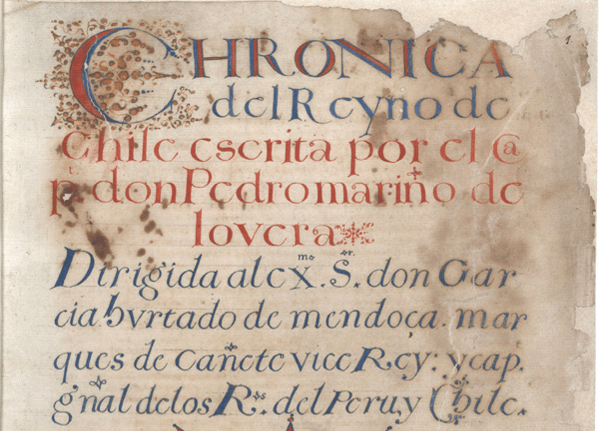 1.
CHRONICA
del Reyno de
Chile escrita por el @
p.ⁿ don Pedro mariño de
lovera
Dirigida al exᵐᵒ. S.ᵒʳ don Gar
cia hurtado de mendoça. mar
ques de Cañete vice Rey: y cap.
gñal de los Rˢ. del Peru, y Chile.